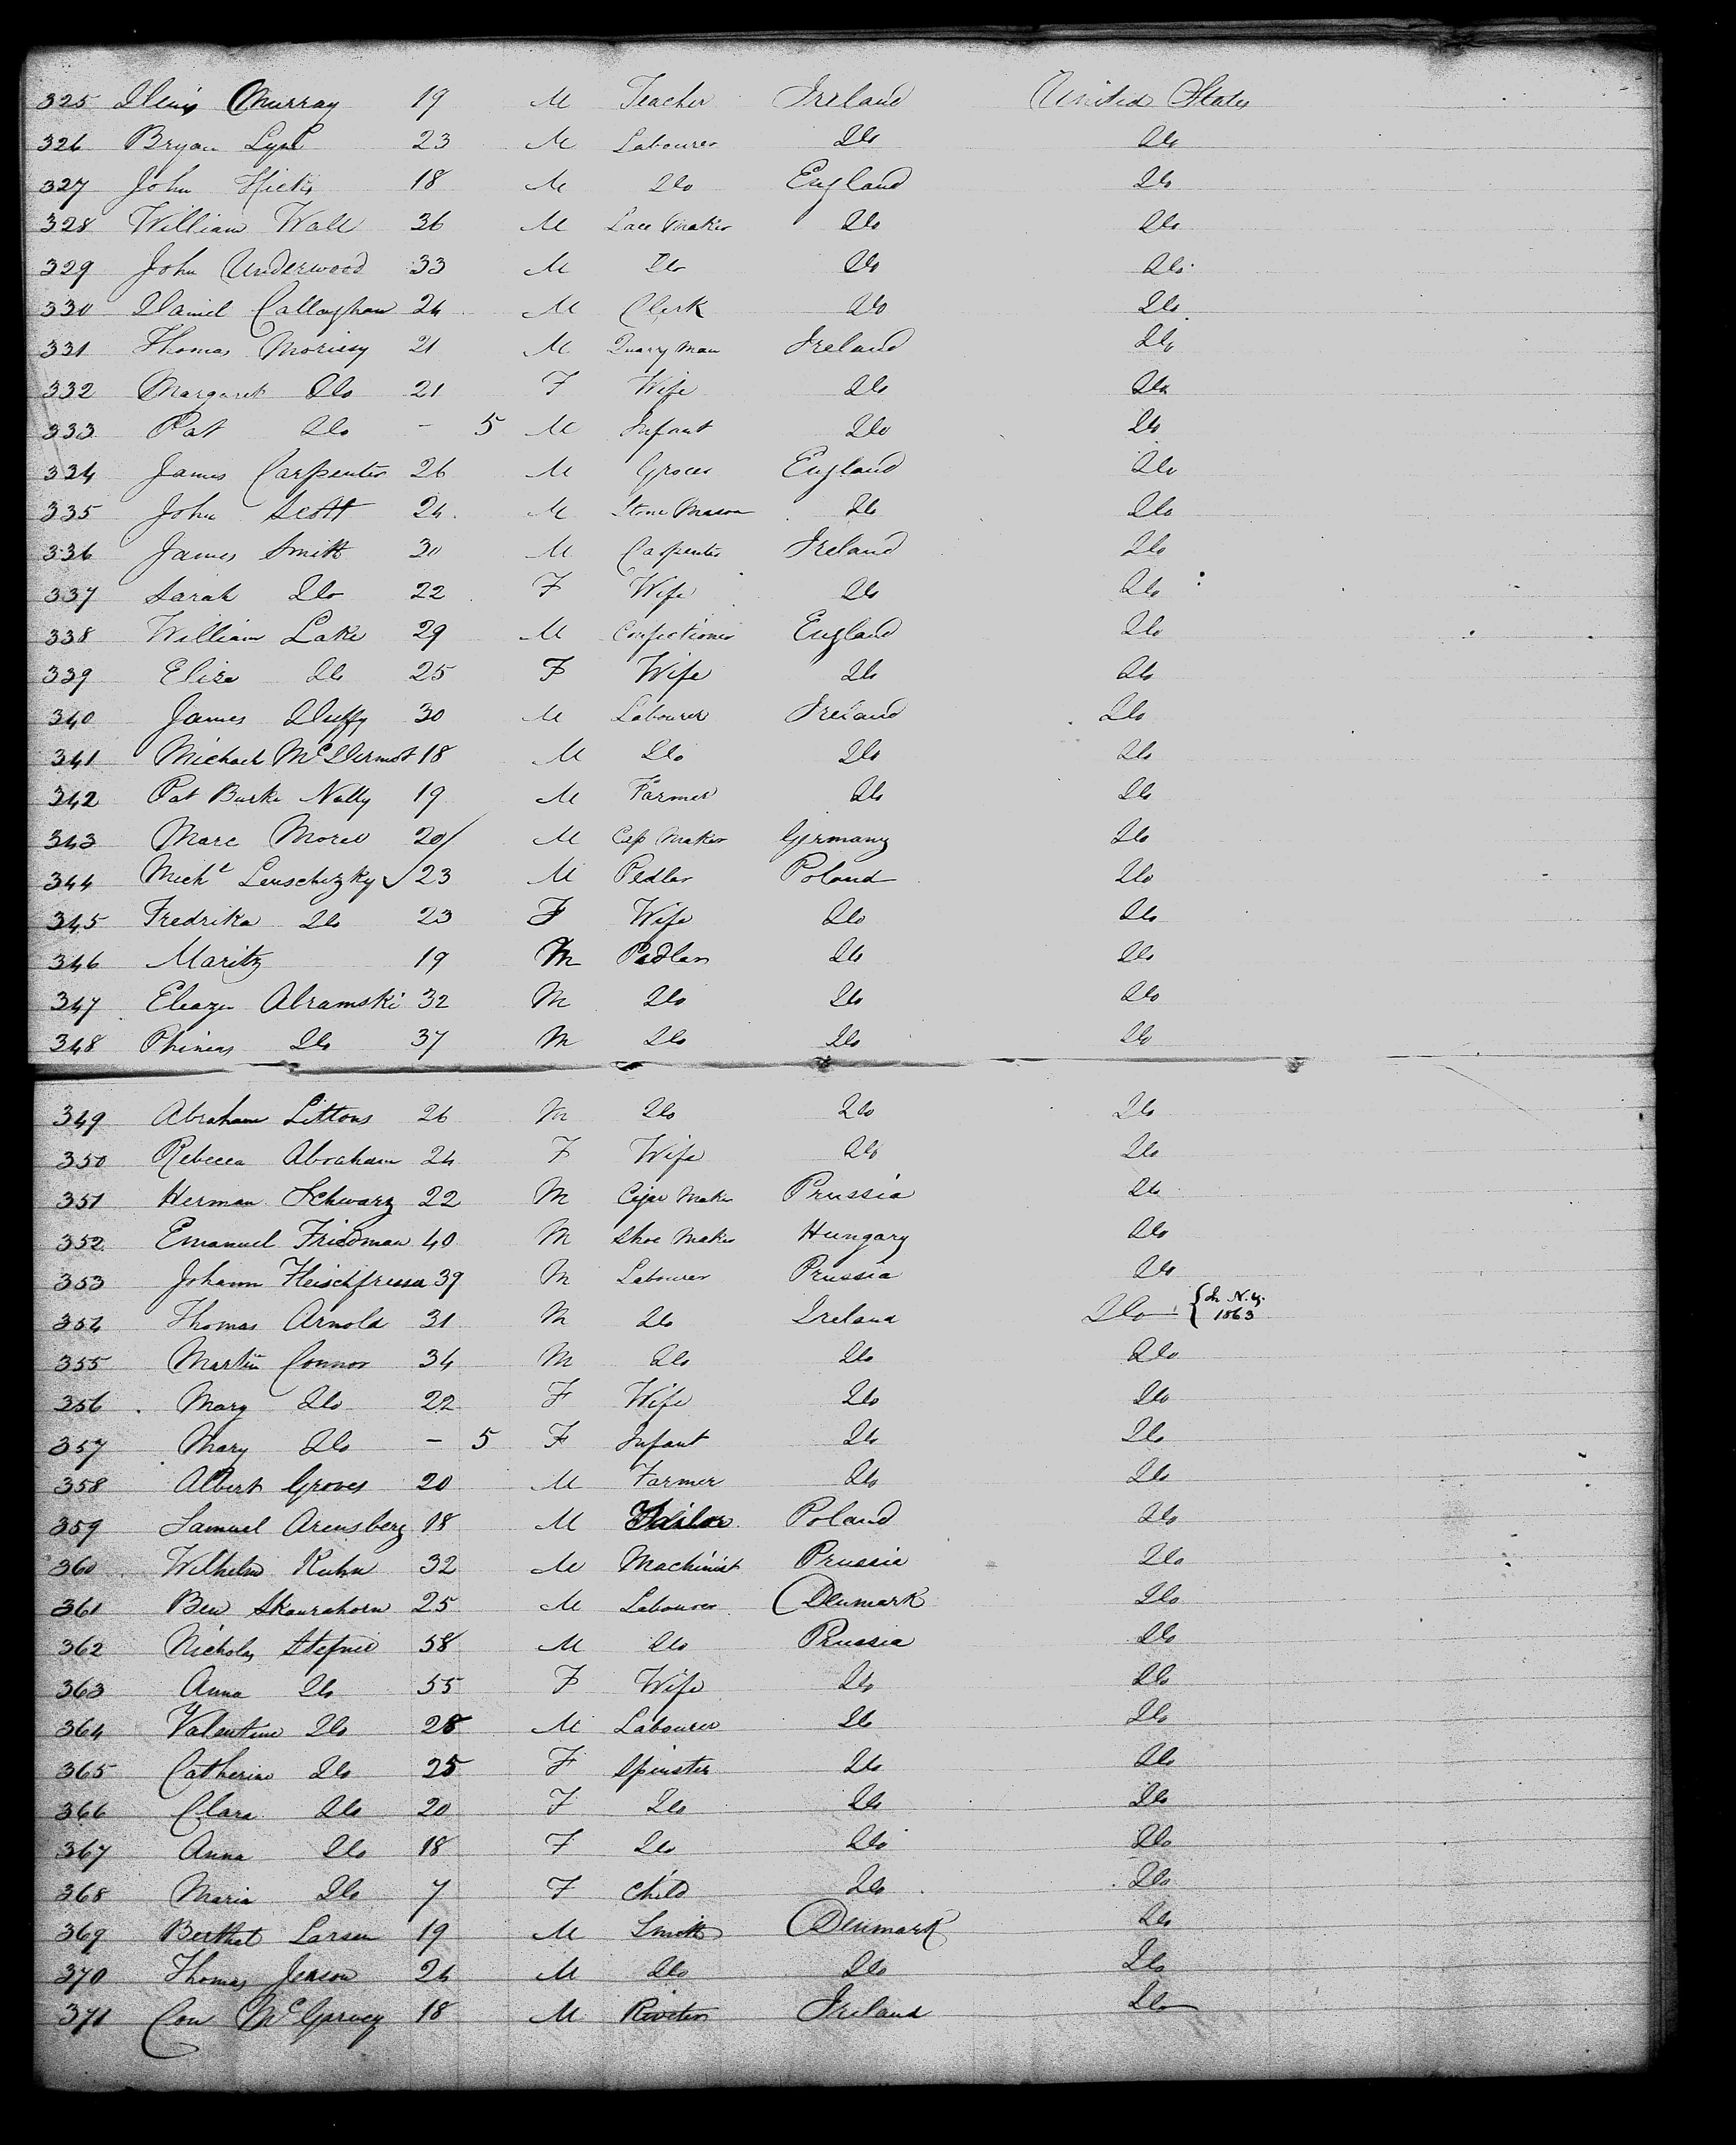 325 Denis Murray 19 M Teacher Ireland United States
326 Bryan 23 M Labourer Do Do
327 John Hicks 18 M Do England Do
328 William Wall 36 M Lace Maker Do Do
329 John Underwood 33 M Do Do Do
330 Daniel Callaghan 24 M Clerk Do Do
331 Thomas Morissy 21 M Quarry Man Ireland Do
332 Margaret Do 21 F Wife Do Do
333 Pat Do - 5 M Infant Do Do
334 James Carpenter 26 M Grocer England Do
335 John Scott 24 M Stone Mason Do Do
336 James Smith 30 M Carpenter Ireland Do
337 Sarah Do 22 F Wife Do Do
338 William Lake 29 M Confectioner England Do
339 Eliza Do 25 F Wife Do Do
340 James Duffy 30 M Labourer Ireland Do
341 Michael McDermot 18 M Do Do Do
342 Pat Burke Nally 19 M Farmer Do Do
343 Marc Morel 20/ M Cap Maker Germany Do
344 Michl Leuschizky ✓ 23 M Pedlar Poland Do
345 Fredrika Do 23 F Wife Do Do
346 Maritz 19 M Pedlar Do Do
347 Eleazer Abramski 32 M Do Do Do
348 Phineas Do 37 M Do Do Do
349 Abraham Littons 26 M Do Do Do
350 Rebecca Abraham 24 F Wife Do Do
351 Herman Schwarz 22 M Cigar Maker Prussia Do
352 Emanuel Friedman 40 M Shoe Maker Hungary Do
353 Johann Fleischfresser 39 M Labourer Prussia Do
354 Thomas Arnold 31 M Do Ireland Do { In N.Y. 1863
355 Martin Connor 34 M Do Do Do
356 Mary Do 22 F Wife Do Do
357 Mary Do - 5 F Infant Do Do
358 Albert Groves 20 M Farmer Do Do
359 Samuel Arensberg 18 M Tailor Poland Do
360 Wilhelm Kuhn 32 M Machinist Prussia Do
361 Ben 25 M Labourer Denmark Do
362 Nicholas 58 M Do Prussia Do
363 Anna Do 55 F Wife Do Do
364 Valentine Do 28 M Labourer Do Do
365 Catherine Do 25 F Spinster Do Do
366 Clara Do 20 F Do Do Do
367 Anna Do 18 F Do Do Do
368 Maria Do 7 F Child Do Do
369 Berthel Larsen 19 M Smith Denmark Do
370 Thomas Jenson 24 M Do Do Do
371 Con McGarvey 18 M Riveter Ireland Do